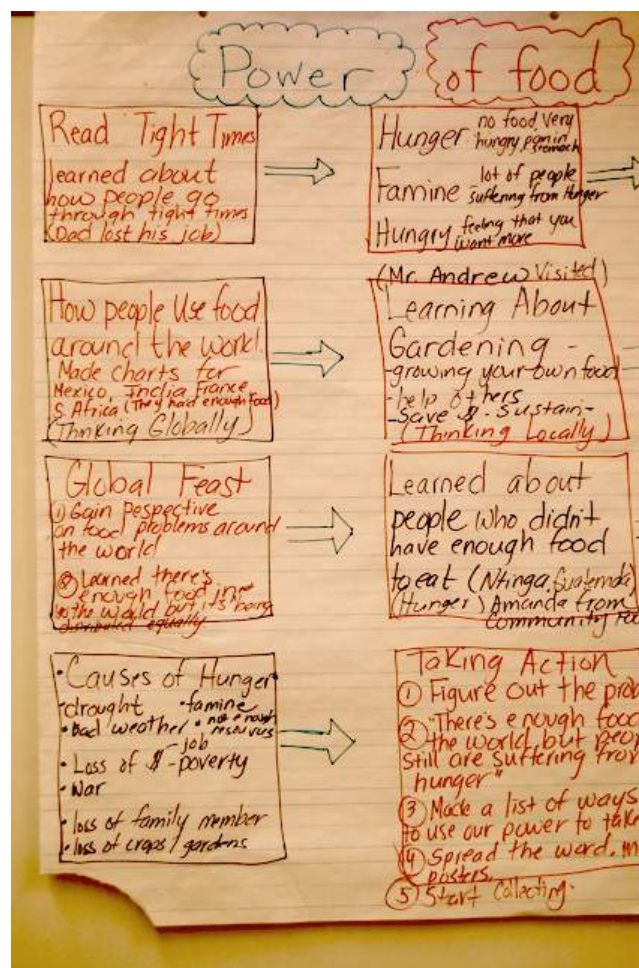 Power of food
Read "Tight Times"
learned about
how people go
through tight times
(Dad lost his job)
Hunger no food, very
hungry, pain in
stomach
Famine - lot of people
suffering from Hunger
Hungry feeling that you
want more
How people Use food
around the world.
Made charts for
Mexico, India, France,
S. Africa (They had enough food)
(Thinking Globally)
(Mr. Andrew Visited)
Learning About
Gardening -
-growing your own food
-help others
-Save $ - Sustain-
(Thinking Locally)
Global Feast
① Gain Pespective
on food problems around
the world
② Learned there's
enough food in
the world but it's being
distributed equally
Learned about
people who didn't
have enough food
to eat (Ntinga, Guatemala)
(Hunger) Amanda from
Community
• Causes of Hunger
-drought • famine
• Bad weather • not enough
resources
• Loss of $ - job
- poverty
• War
• loss of family member
• loss of crops / gardens
Taking Action
① Figure out the prob
② "There's enough food
the world, but peop
still are suffering fro
hunger"
③ Made a list of ways
to use our power to take
④ Spread the word, m
posters.
⑤ Start Collecting.